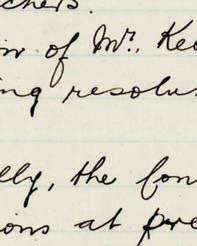 chers.
of Mr. Kee
ing resolu
lly, the fon
ions at pre